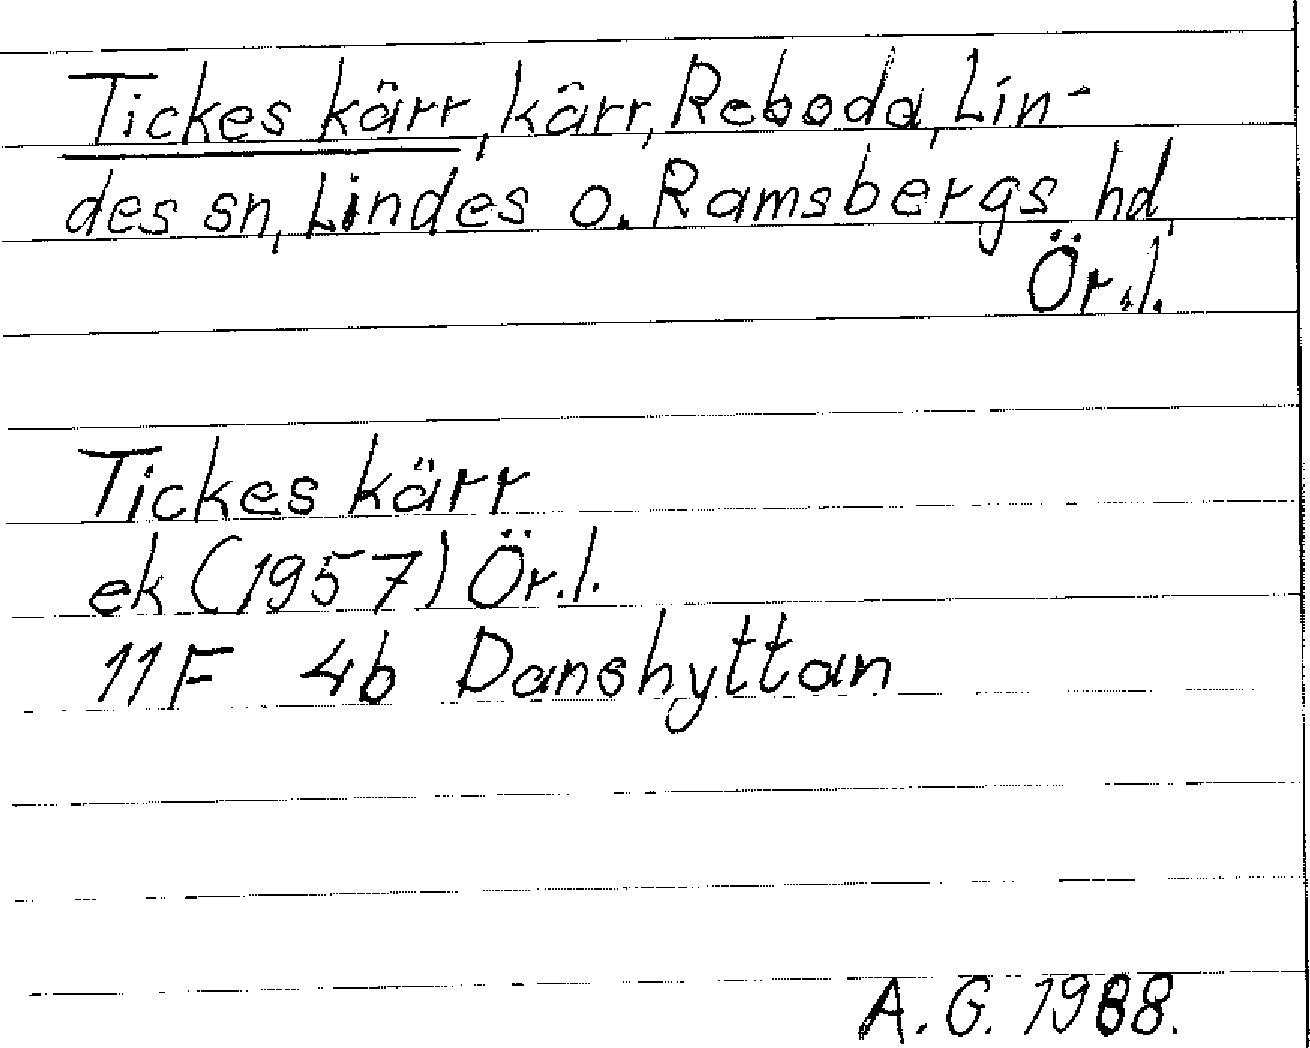 Tickes kärr, kärr, Reboda, Lin-
des sn, Lindes o. Ramsbergs hd,
Ör.l.
Tickes kärr
ek (1957) Ör.l.
11F 4b Danshyttan
A.G. 1988.